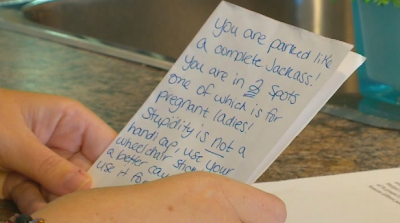 You are parked like
a complete Jackass!
You are in 2 spots
one of which is for
pregnant ladies!
Stupidity is not a
handicap, use your
wheelchair
a better
use it